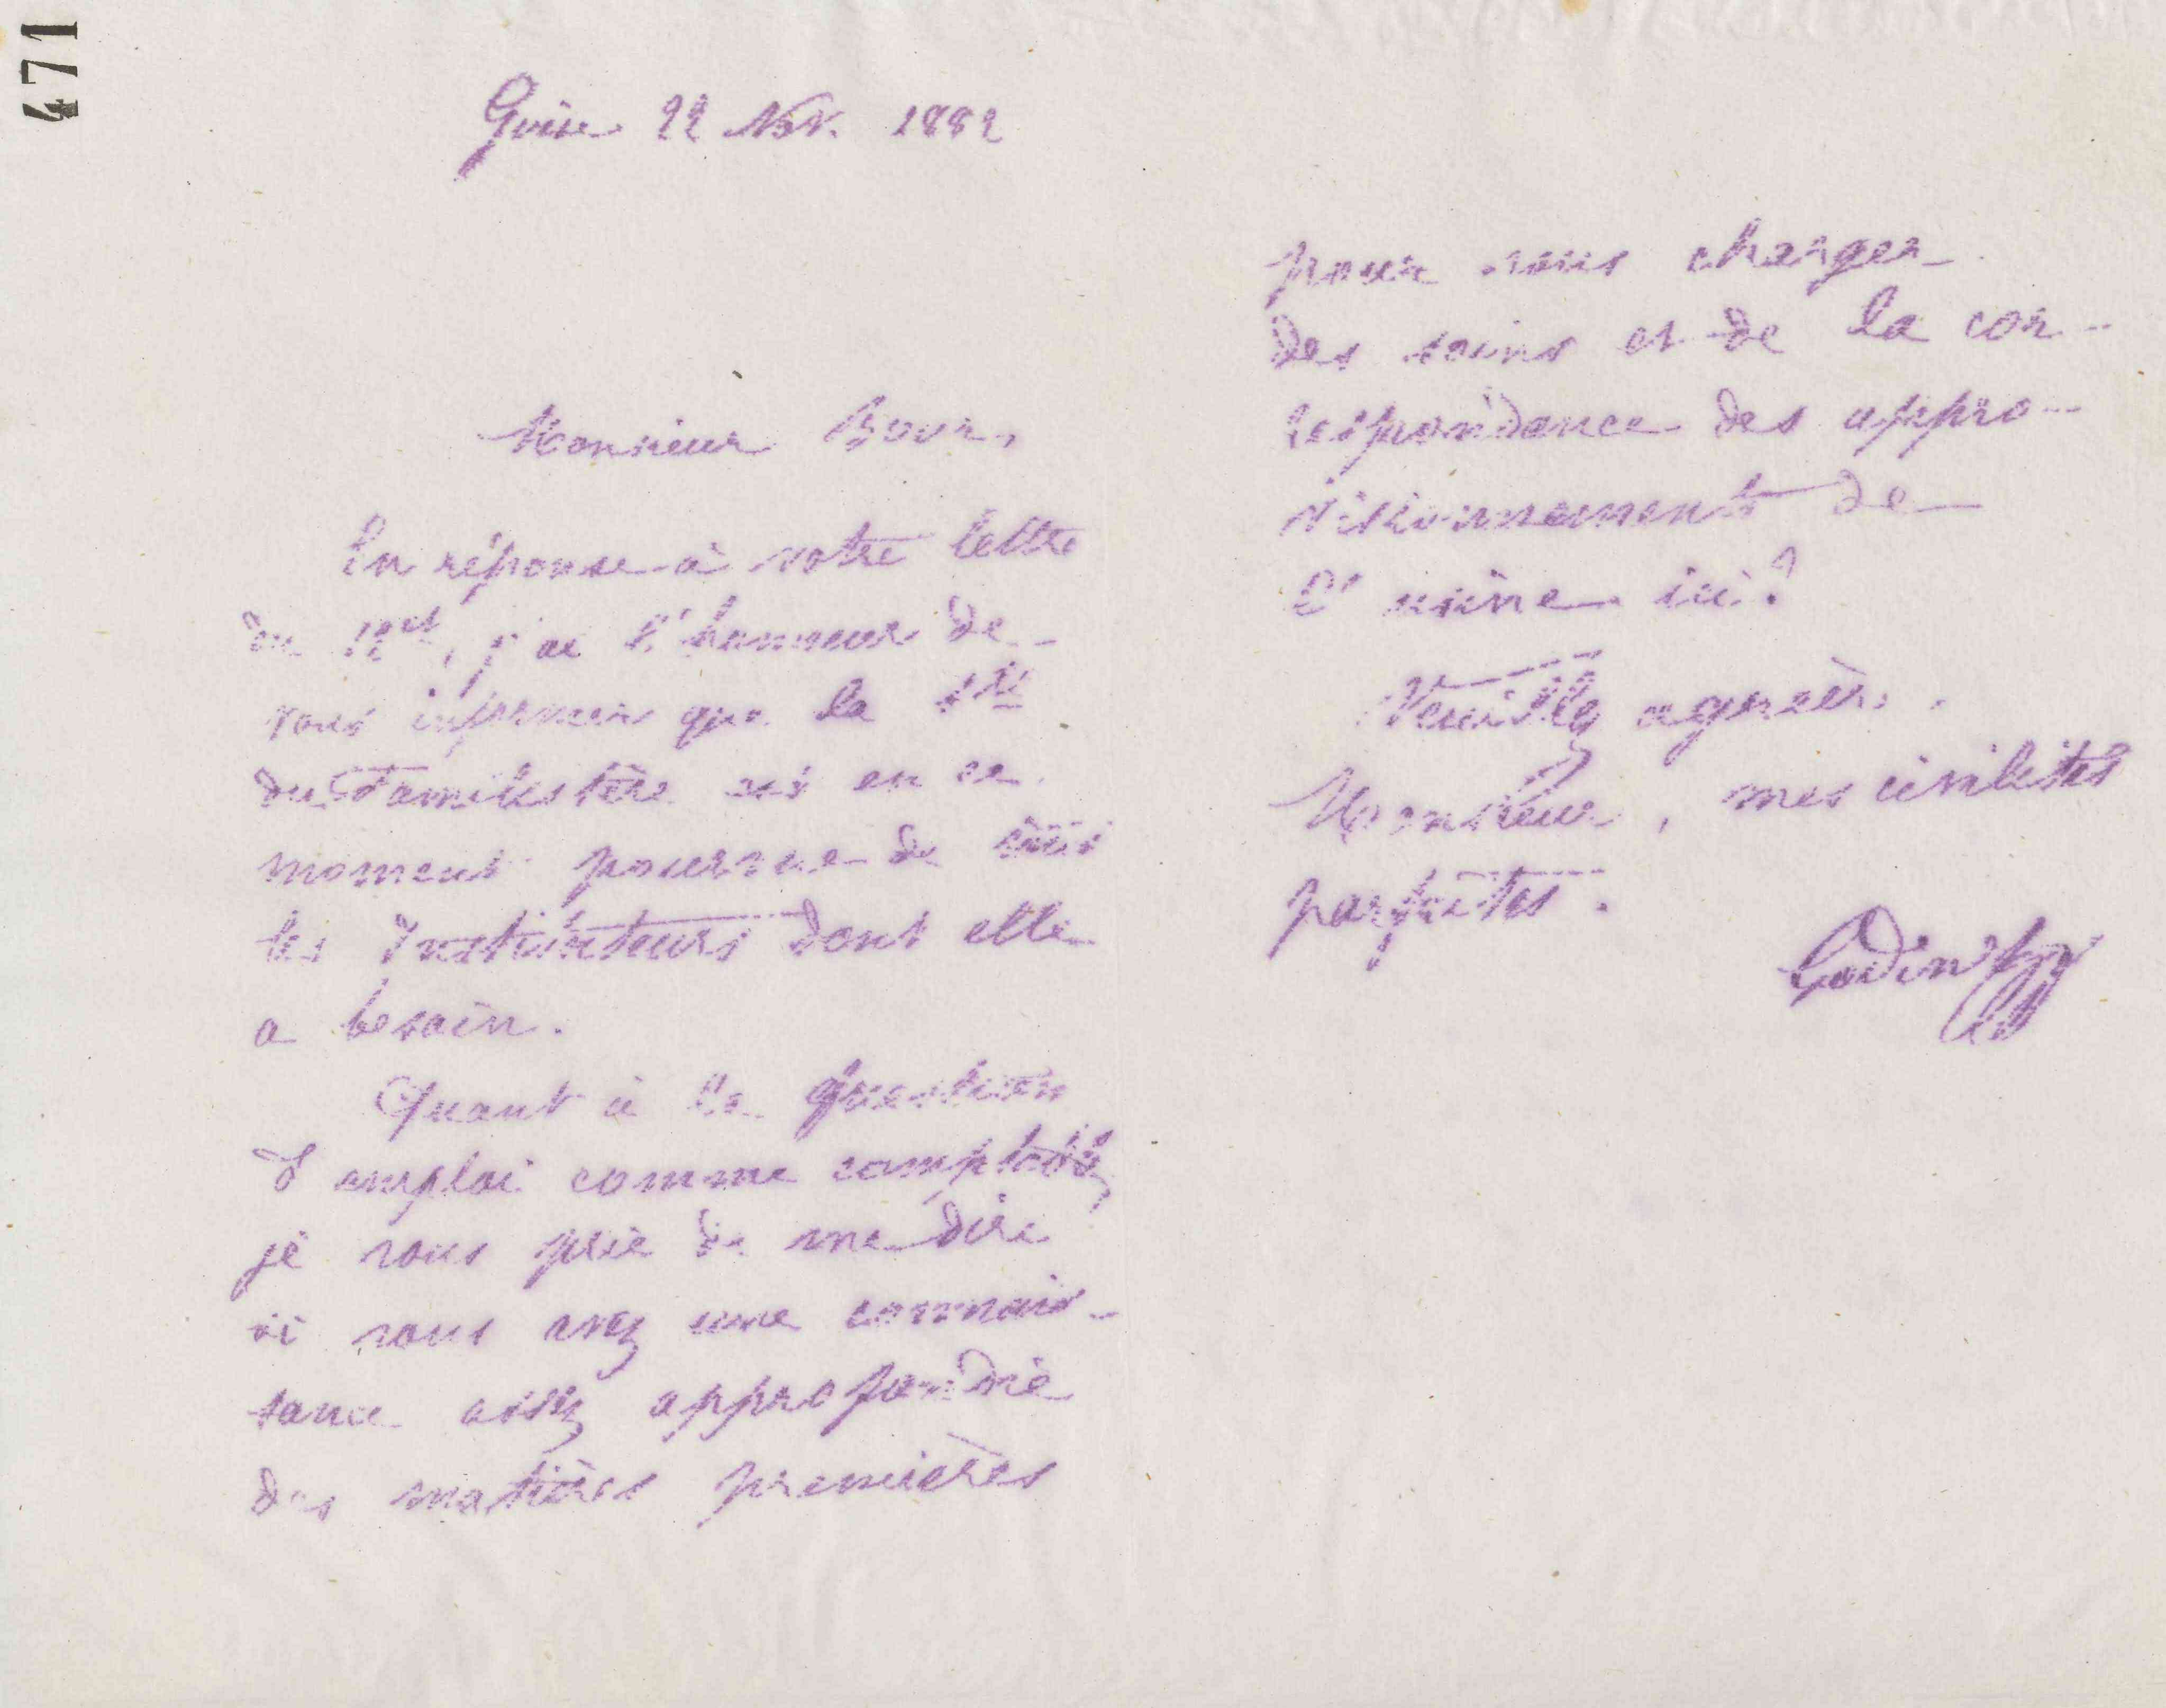 471
Guise 22 Nov. 1882
Monsieur
En réponse à votre lettre
du 12 ct, j'ai l'honneur de
vous informer que la Sté
du Familistère est en ce
moment pourvue de tous
les Instituteurs dont elle
a besoin.
Quant à la question
d'emploi comme comptable,
je vous prie de me dire
si vous avez une connais-
sance assez approfondie
des matières premières
pour vous charger
des soins et de la cor-
respondance des appro-
visionnement de
l'usine ici?
Veuillez agréer,
Monsieur, mes civilités
parfaites.
Godin